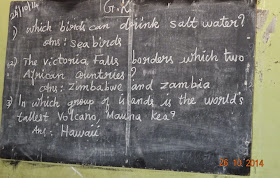 25/10/14
G.K
1) Which birds can drink salt water?
Ans: sea birds
2) The Victoria Falls borders which two
African countries?
Ans: Zimbabwe and Zambia
3) In which group of islands is the world's
tallest Volcano, Mauna Kea?
Ans: Hawaii
25 10 2014